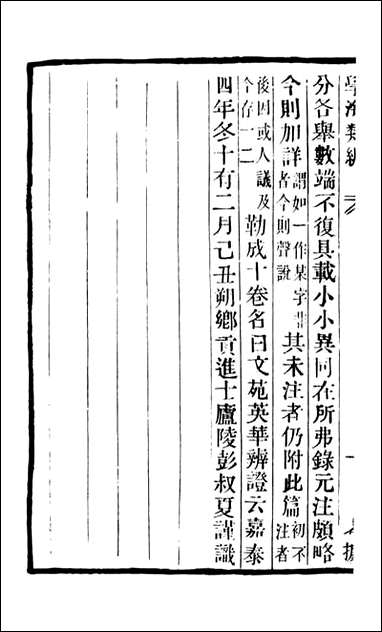 學海類編
分各舉數端不復具載小小異同在所弗錄元注頗略
今則加詳謂如一作某字昔者今則聲說其未注者仍附此篇初不注者
後因或人議及今存一二勒成十卷名曰文苑英華辨證云嘉泰
四年冬十有二月己丑朔鄉貢進士廬陵彭叔夏謹識